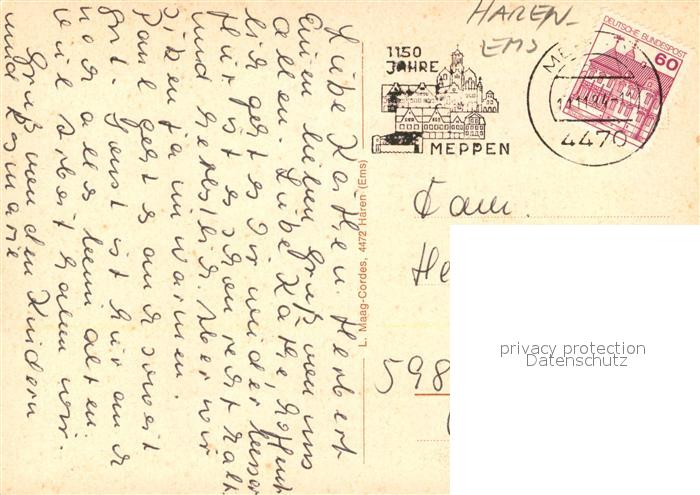 Liebe Käthe u Herbert
Einen lieben Gruß von uns
allen. Liebe Käthe, hoffent
lich geht es Dir wieder besser
Hier ist es schon recht kalt
und herbstlich. Aber wir
sitzen ja im warmen.
Paul geht es auch soweit
gut. Sonst ist hier auch
noch alles beim alten.
viel Arbeit haben wir.
Gruß von den Kindern
und
HAREN-
EMS
1150
JAHRE
MEPPEN
DEUTSCHE BUNDESPOST
60
4470
L. Maag-Cordes, 4472 Haren (Ems)
Fam.
He
598
privacy protection
Datenschutz